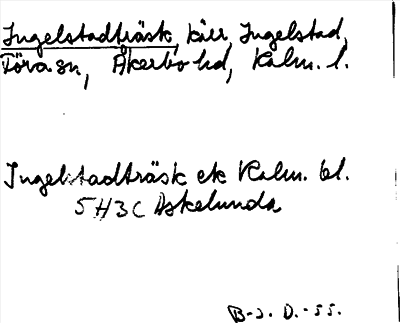 Ingelstadträsk, kärr, Ingelstad,
Föra sn, Åkerbo hd, Kalm. l.
Ingelstadträsk ek Kalm. bl.
5H3C Askelunda
B-s. D.-55.